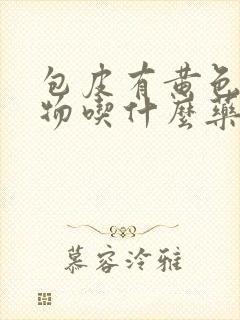 包皮有黄色
物喫什麼藥
慕容泠雅